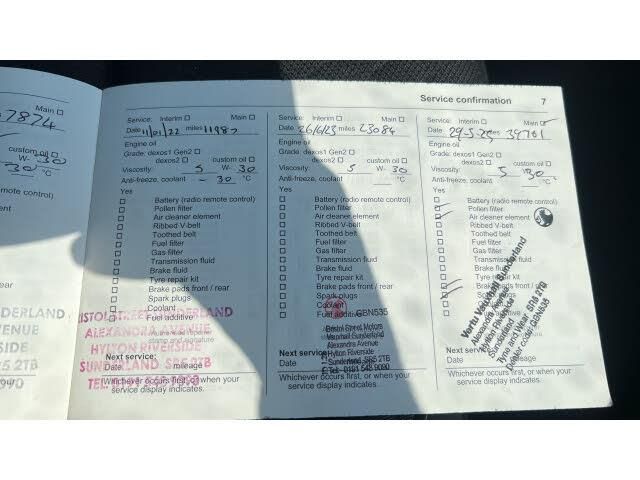 Service confirmation 7
Main
7874
custom oil
W- 30
30 °C
remote control)
ement
rear
DERLAND
VENUE
SIDE
R5 2TB
9090
Service: Interim Main
Date 11/01/22 miles 11987
Engine oil
Grade: dexos1 Gen2
dexos2 custom oil
Viscosity: 5 W- 30
Anti-freeze, coolant - 30 °C
Yes
Battery (radio remote control)
Pollen filter
Air cleaner element
Ribbed V-belt
Toothed belt
Fuel filter
Gas filter
Transmission fluid
Brake fluid
Tyre repair kit
Brake pads front / rear
Spark plugs
Coolant
Fuel additive
stamp and signature
BRISTOL STREET SUNDERLAND
ALEXANDRA AVENUE
HYLTON RIVERSIDE
SUNDERLAND SR5 2TB
TEL:
Next service:
Date mileage
Whichever occurs first, or when your
service display indicates.
Service: Interim Main
Date 26/6/23 miles 23084
Engine oil
Grade: dexos1 Gen2
dexos2 custom oil
Viscosity: 5 W- 30
Anti-freeze, coolant °C
Yes
Battery (radio remote control)
Pollen filter
Air cleaner element
Ribbed V-belt
Toothed belt
Fuel filter
Gas filter
Transmission fluid
Brake fluid
Tyre repair kit
Brake pads front / rear
Spark plugs
Coolant
Fuel additive
GBN535
Bristol Street Motors
Vauxhall Sunderland
Alexandra Avenue
Hylton Riverside
Sunderland, SR5 2TB
Tel: 0191 543 9090
Next service:
Date
Whichever occurs first, or when your
service display indicates.
Service: Interim Main
Date 29-5- miles 34701
Engine oil
Grade: dexos1 Gen2
dexos2 custom oil
Viscosity: 5 30
Anti-freeze, coolant °C
Yes
Battery (radio remote control)
Pollen filter
Air cleaner element
Ribbed V-belt
Toothed belt
Fuel filter
Gas filter
Transmission fluid
Brake fluid
Tyre repair kit
Brake pads front / rear
Spark plugs
Coolant
Fuel additive
Vertu Vauxhall Sunderland
Alexandra Avenue
Hylton Riverside
Sunderland
Tyne and Wear SR5 2TB
Dealer code: GBN535
Next service:
Date mileage
Whichever occurs first, or when your
service display indicates.